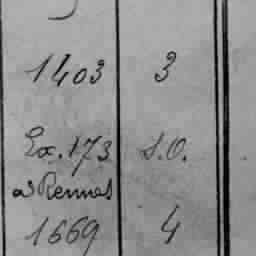 1403 3
Ex. 173 S.O.
à Rennes
1669 4